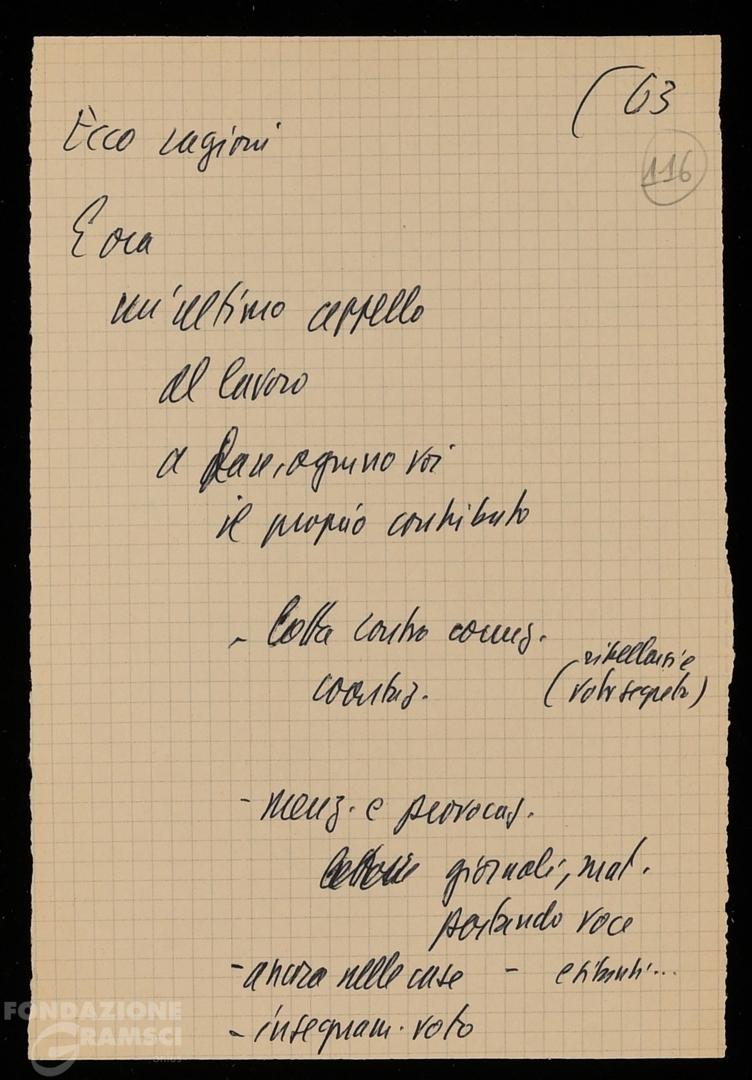 (63
116
Ecco ragioni
E ora
un'ultimo appello
al lavoro
a fare, ognuno voi
il proprio contributo
- lotta contro
(ribellarsi e
voto segreto)
- menz. e provocaz.
giornali, mat.
portando voce
- ancora nelle case -
- insegnam. voto
FONDAZIONE
GRAMSCI